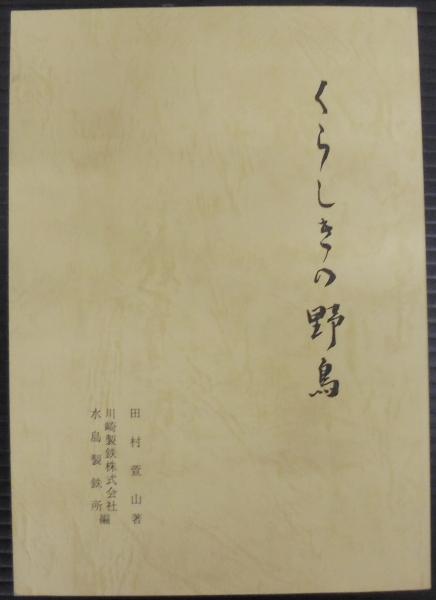 くらしきの野鳥
田村萱山著
川崎製鉄株式会社
水島製鉄所編